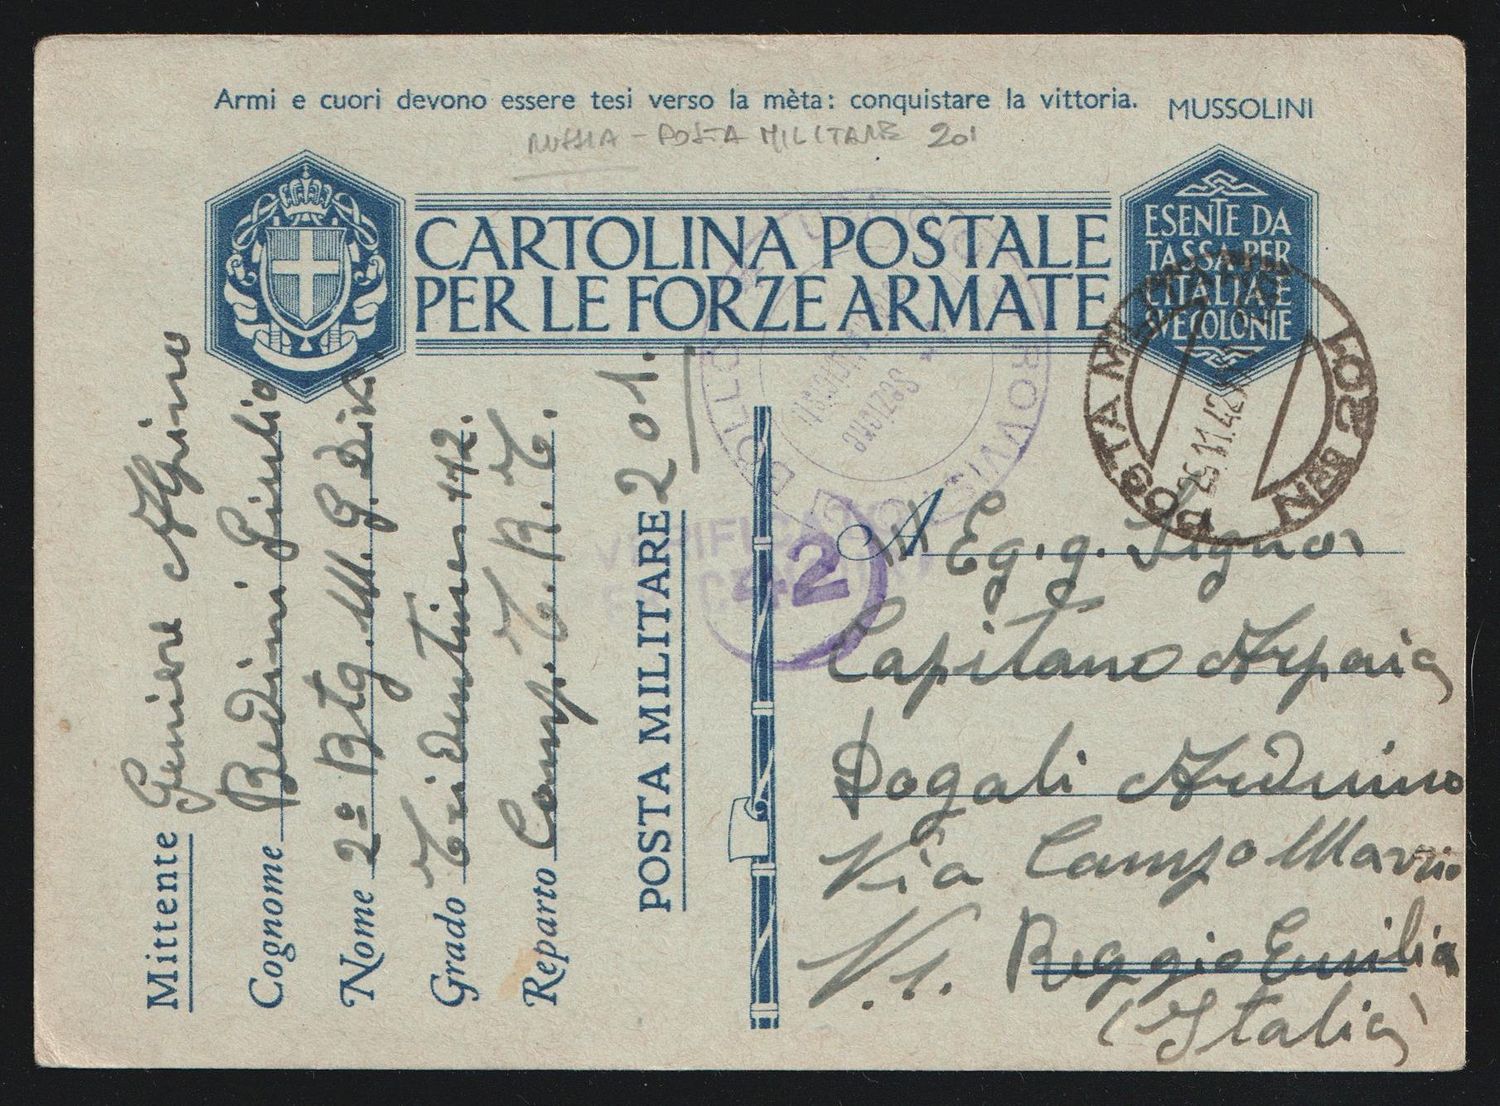 Armi e cuori devono essere tesi verso la mèta: conquistare la vittoria. MUSSOLINI
RUSSIA - POSTA MILITARE 201
CARTOLINA POSTALE
PER LE FORZE ARMATE
ESENTE DA
TASSA PER
L'ITALIA E
SVE COLONIE
POSTA MILITARE
25.11.42
VERIFICATO
42
Mittente Geniere Alpino
Cognome Bedini Giulio
Nome 2º Btg. M. G.
Grado Tridentina 112.
Reparto Comp. T. R. T.
POSTA MILITARE 201.
A Eg. g. Signor
Capitano Arpaia
Dogali Arduino
Via Campo Marzio
N. 1. Reggio Emilia
(Italia)